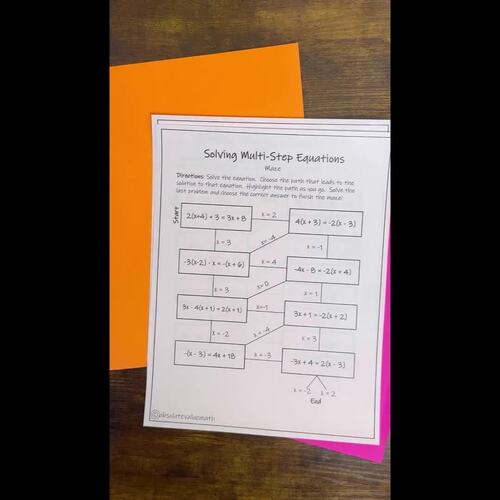 Solving Multi-Step Equations
Maze
Directions: Solve the equation. Choose the path that leads to the
solution to that equation. Highlight the path as you go. Solve the
last problem and choose the correct answer to finish the maze!
Start
2(x+4) + 3 = 3x + 8
x = 2
4(x + 3) = -2(x - 3)
x = 3
x= -4
x = -1
-3(x-2) - x = -(x + 6)
x = 4
-4x - 8 = -2(x + 4)
x = 3
x= 0
x = 1
3x - 4(x + 1) = 2(x + 1)
x=-1
3x + 1 = -2(x + 2)
x = -2
x = -4
x = 3
-(x - 3) = 4x + 18
x = -3
-3x + 4 = 2(x - 3)
x = -2
x = 2
End
©absolutevaluemath